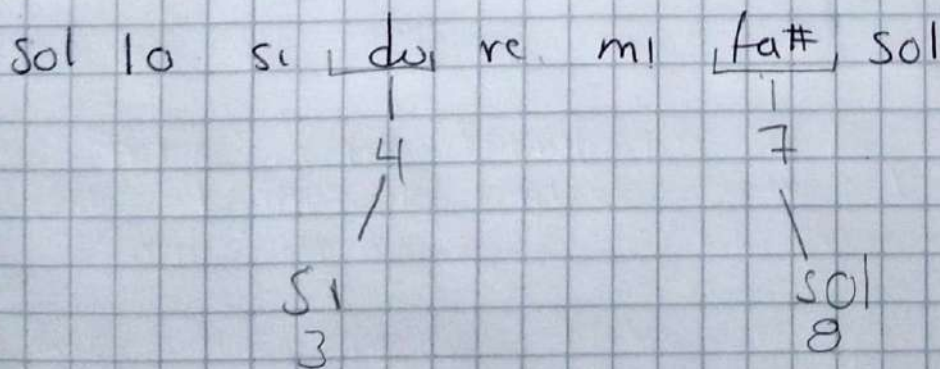 sol la si do re mi fa# sol
4 7
si sol
3 8